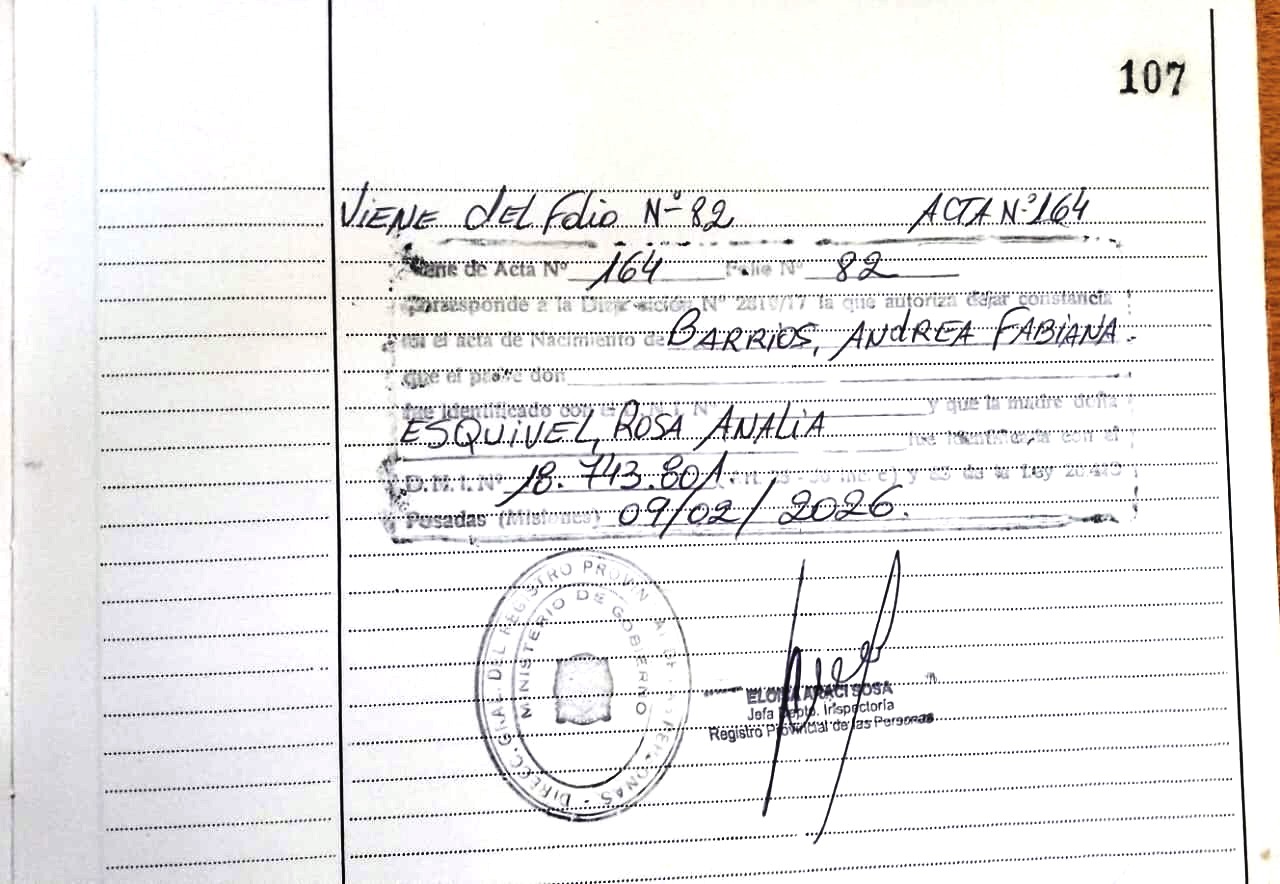 107
VIENE del Folio Nº 82 ACTA Nº 164
de Acta Nº 164 Folio Nº 82
Corresponde a la Disposición Nº 2810/17 la que autoriza dejar constancia
en el acta de Nacimiento de BARRIOS, ANDREA FABIANA.
que el padre don
fue identificado con el D.N.I. Nº y que la madre doña
ESQUIVEL, ROSA ANALIA fue identificada con el
D.N.I. Nº 18.743.801. y de la Ley
Posadas (Misiones) 09/02/2026.
DIRECC. GRAL. DEL REGISTRO PROVINCIAL DE LAS PERSONAS
MINISTERIO DE GOBIERNO
ARACI SOSA
Jefa Depto. Inspectoria
Registro Provincial de las Personas